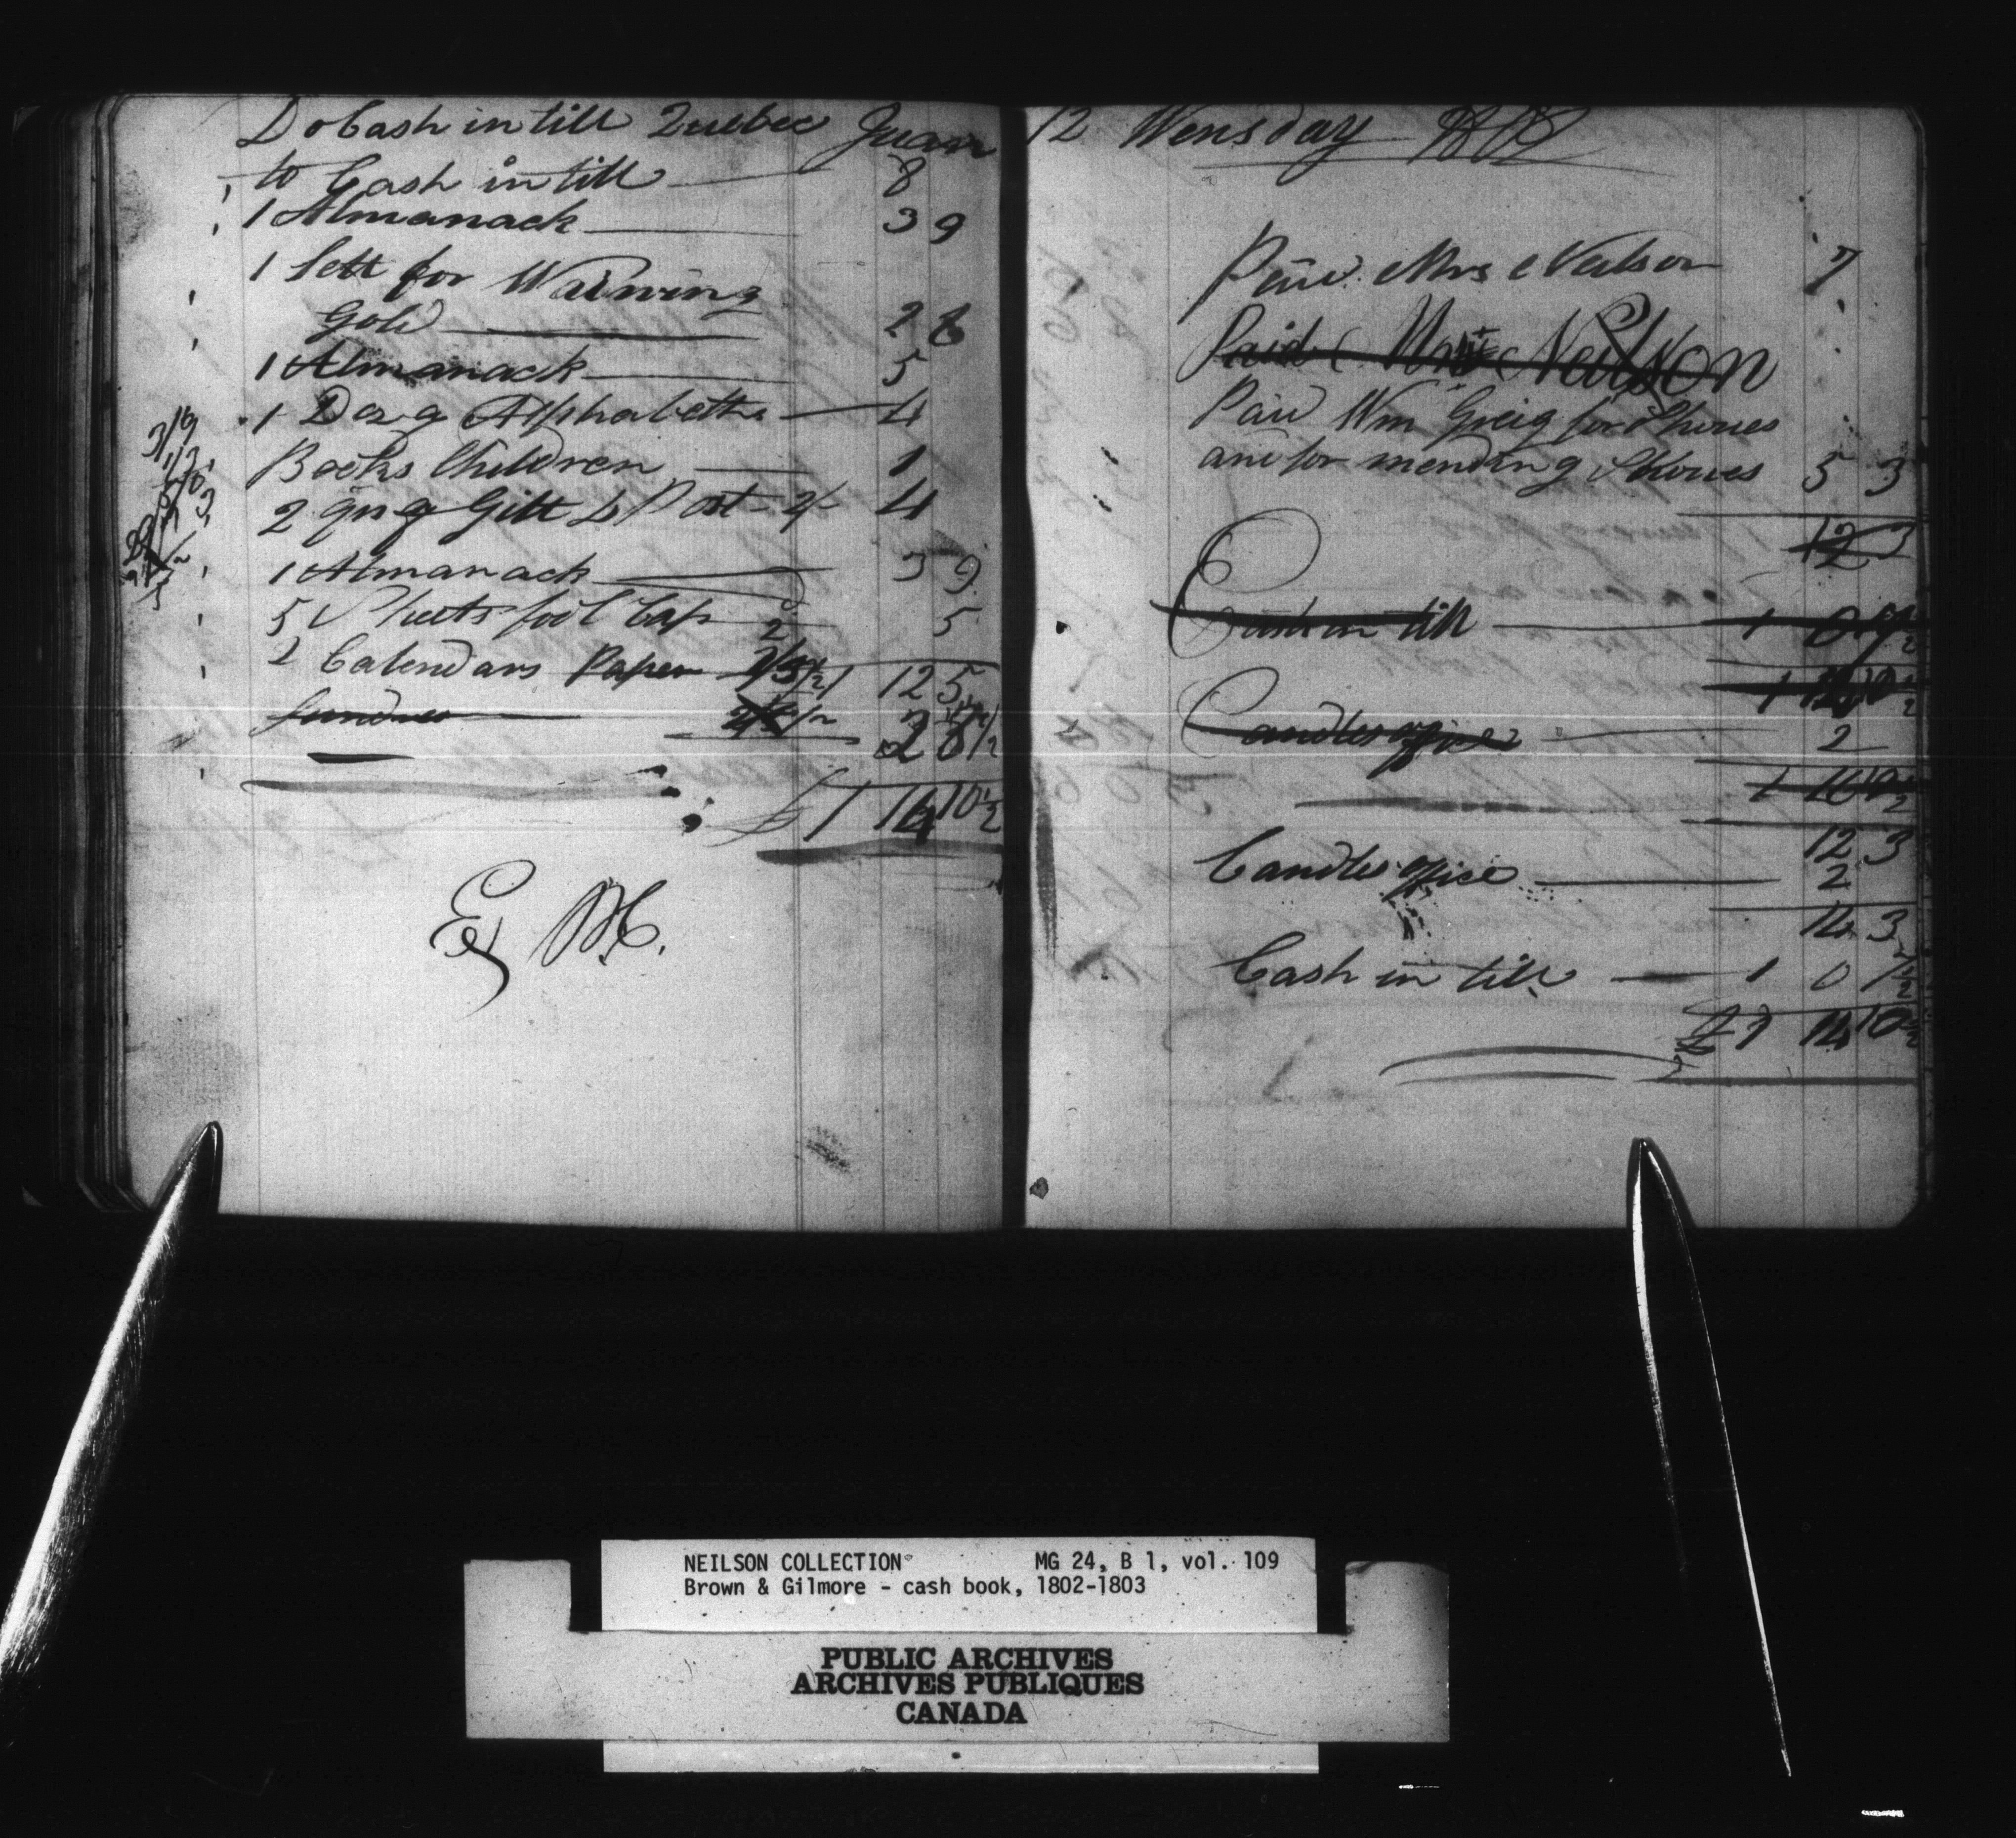 Do Cash in till Quebec Juanr
to Cash in till 8
1 Almanack 3 9
1 Sett for Warning
Gold 2 6
1 Almanack 5
1 Doz g Alphabetts 4
Books Children 1
2 qrs g Gilt Post 2/ 4
1 Almanack 3 9
5 Sheets fool Cap 5
2 Calendars Paper 1 12 5
Sundres
£1 14 10½
3/9
12 Wensday
Paid Mrs Neilson 7
Paid Mrs Neilson
Paid Wm Greig for Shoues
and for mending Shoues 5 3
12 3
Cash in till 1 0 7½
Candles office 2
12 3
Candles office 2
14 3
Cash in till 1 0 7½
£1 14 10½
NEILSON COLLECTION MG 24, B 1, vol. 109
Brown & Gilmore - cash book, 1802-1803
PUBLIC ARCHIVES
ARCHIVES PUBLIQUES
CANADA